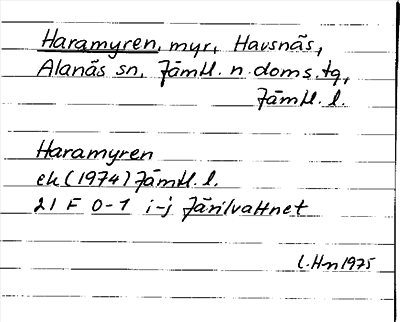 Haramyren, myr, Havsnäs,
Alanäs sn, Jämtl. n. doms. tg,
Jämtl. l.
Haramyren
ek (1974) Jämtl. l.
21 F 0-1 i-j Järilvattnet
L.Hn 1975